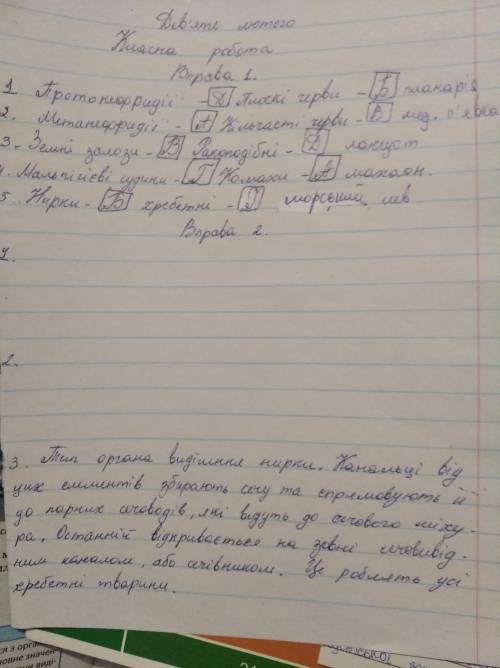 Дев'яте лютого
Класна робота
Вправа 1.
1. Протонефридії - Д Плоскі черви - Б планарія
2. Метанефридії - А Кільчасті черви - В мед. п'явка
3. Земні залози - В Ракоподібні - Д лангуст
4. Мальпігієві судини - Г Комахи - А махаон.
5. Нирки - Б хребетні - Г морський лев
Вправа 2.
1.
2.
3. Тип органа виділення нирки. Канальці від
цих елементів збирають сечу та спрямовують її
до парних сечоводів, які ведуть до сечового міху-
ра. Останній відкривається на зовні сечовивід-
ним каналом, або сечівником. Це роблять усі
хребетні тварини.